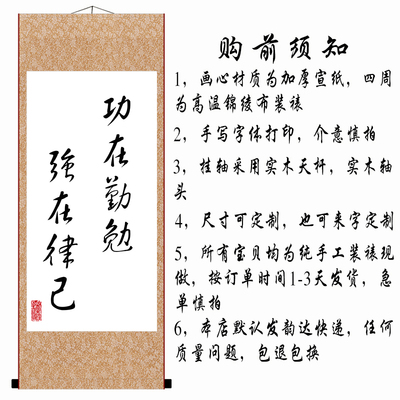 功在勤勉
强在律己
购前须知
1，画心材质为加厚宣纸，四周
为高温锦绫布装裱
2，手写字体打印，介意慎拍
3，挂轴采用实木天杆，实木轴
头
4，尺寸可定制，也可来字定制
5，所有宝贝均为纯手工装裱现
做，按订单时间1-3天发货，急
单慎拍
6，本店默认发韵达快递，任何
质量问题，包退包换